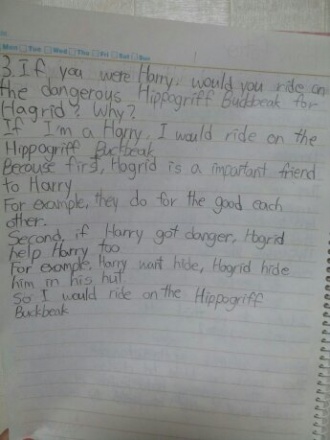 Mon Tue Wed Thu Fri Sat Sun
3. If you were Harry, would you ride on
the dangerous Hippogriff Buckbeak for
Hagrid? Why?
If I'm a Harry, I would ride on the
Hippogriff Buckbeak
Because first, Hagrid is a important friend
to Harry
For example, they do for the good each
other.
Second, if Harry got danger, Hagrid
help Harry too
For example, Harry want hide, Hagrid hide
him in his hut
So I would ride on the Hippogriff
Buckbeak